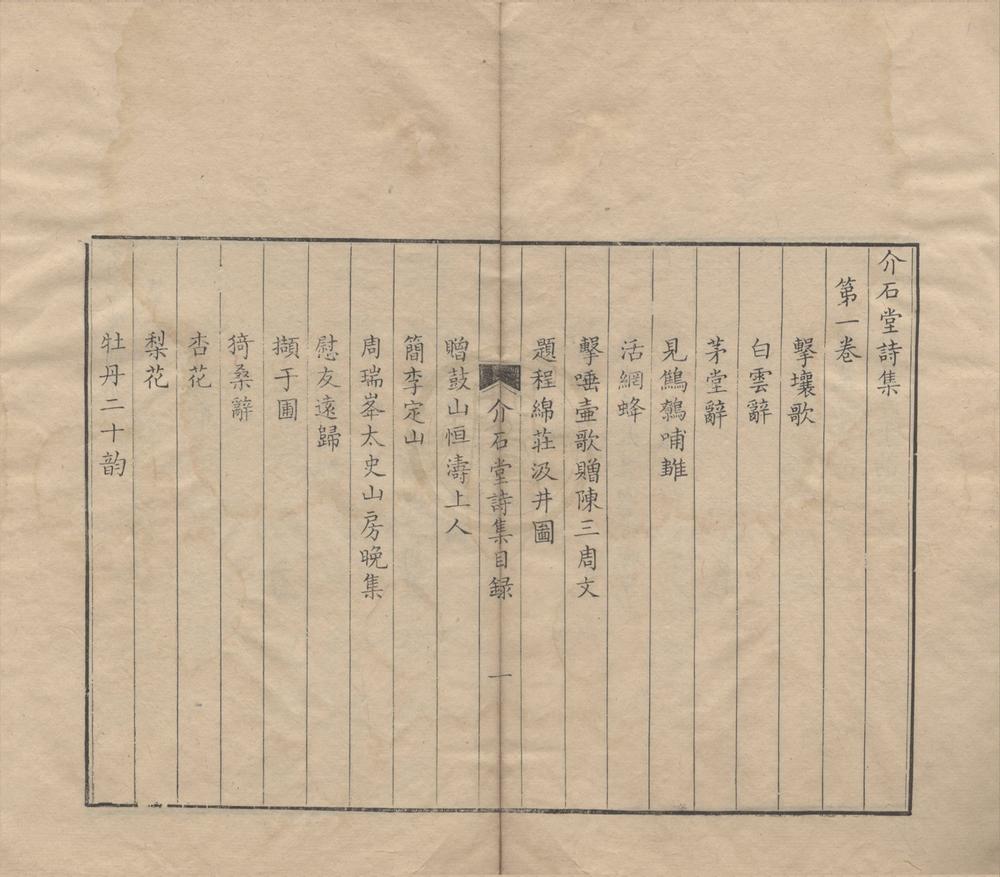 介石堂詩集
第一卷
擊壤歌
白雲辭
茅堂辭
見鷦鷯哺雛
活網蜂
擊唾壷歌贈陳三周文
題程綿莊汲井圗
介石堂詩集目録
一
贈鼓山恒濤上人
簡李定山
周瑞峯太史山房晚集
慰友遠歸
擷于圃
猗桑辭
杏花
梨花
牡丹二十韵